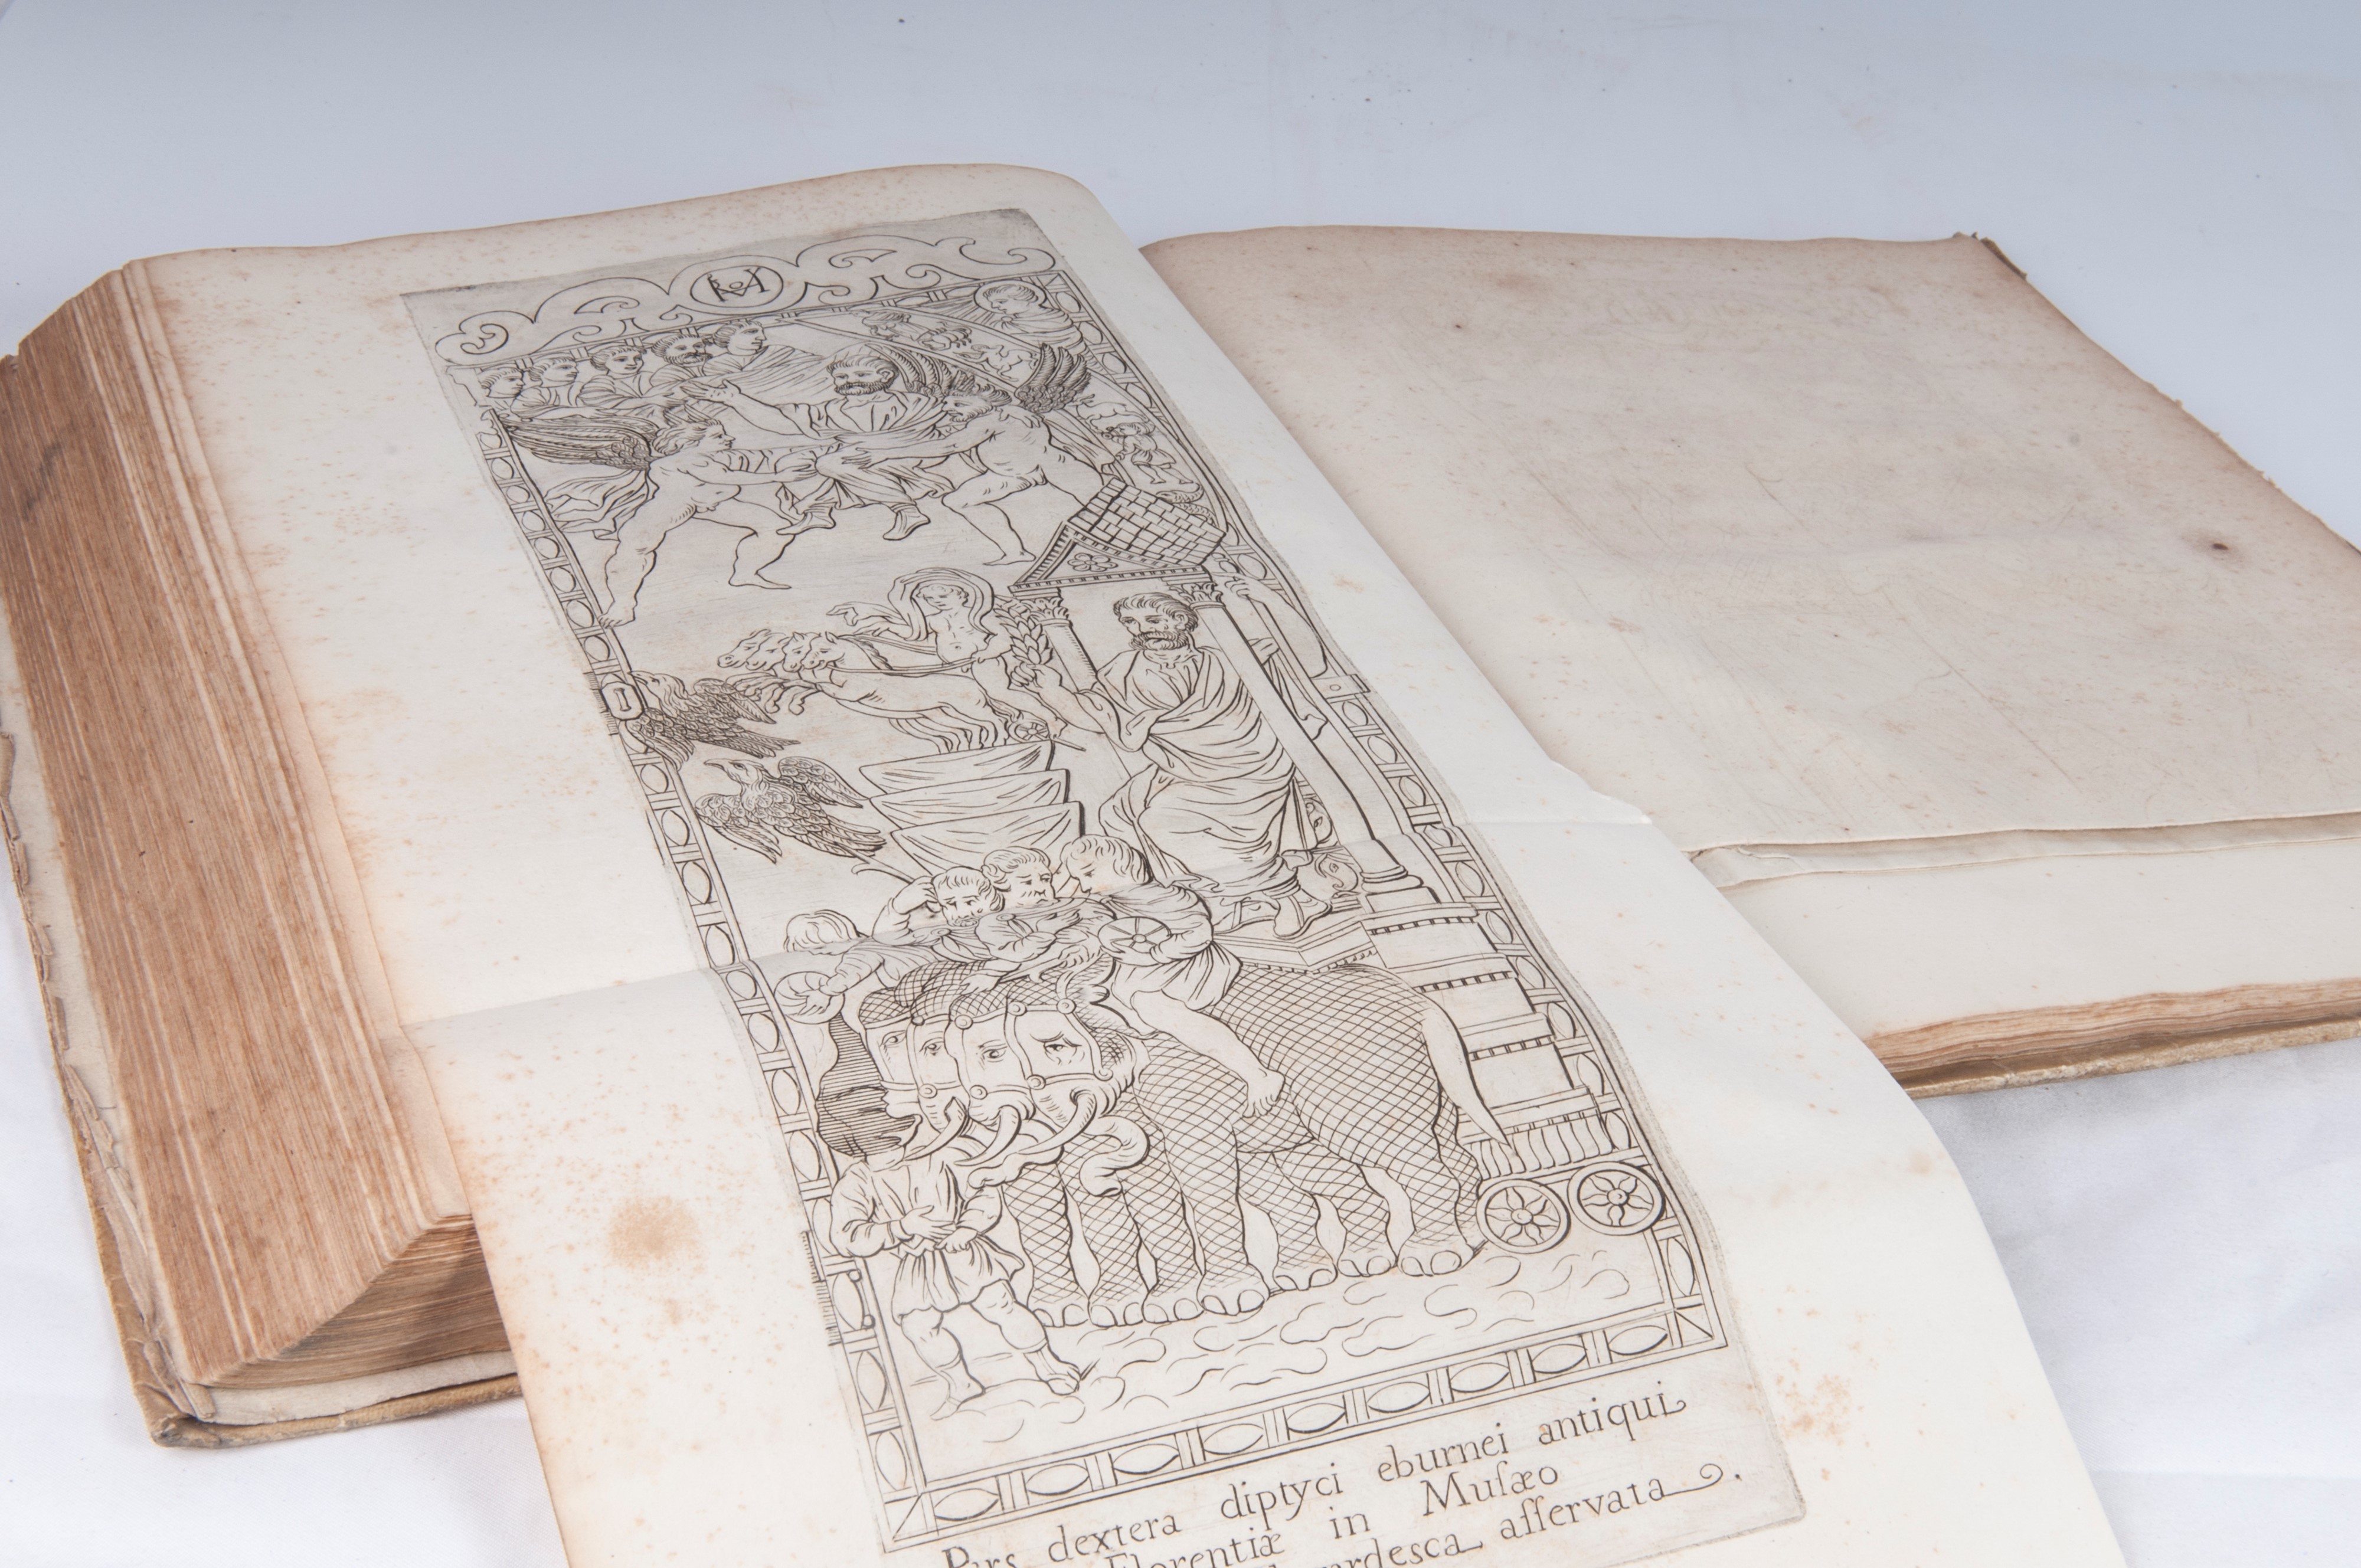 Pars dextera diptyci eburnei antiqui
Florentiæ in Muſæo
aſſervata.